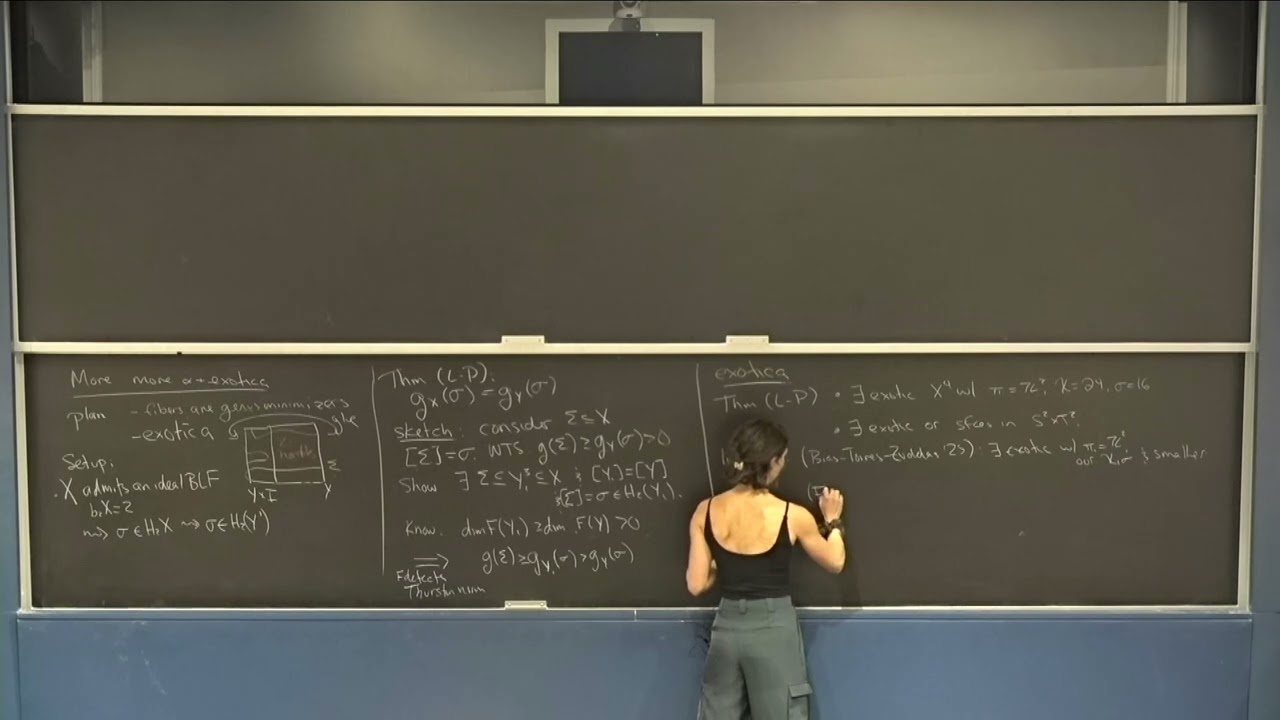 More more on exotica
plan - fibers are genus minimizers
- exotica
glue
Setup:
X admits an ideal BLF
b₂X=2
⇝ σ∈H₂X ⇝ σ∈H₂(Y)
Y×I
Y
Σ
Thm (L-P):
g_X(σ) = g_Y(σ)
sketch: consider Σ⊆X
[Σ]=σ. WTS g(Σ)≥g_Y(σ)>0
Show ∃ Σ⊆Y₁³⊆X & [Y₁]=[Y]
& [Σ]=σ∈H₂(Y₁).
Know. dim F(Y₁)≥dim F(Y)>0
⟹ g(Σ)≥g_{Y₁}(σ)≥g_Y(σ)
F detects
Thurston norm
exotica
Thm (L-P) • ∃ exotic X⁴ w/ π=ℤ², χ=24, σ=16
• ∃ exotic or sfces in S²×T².
(Bais-Torres-Zuddas 23): ∃ exotic w/ π₁=ℤ²
our χ, σ & smaller